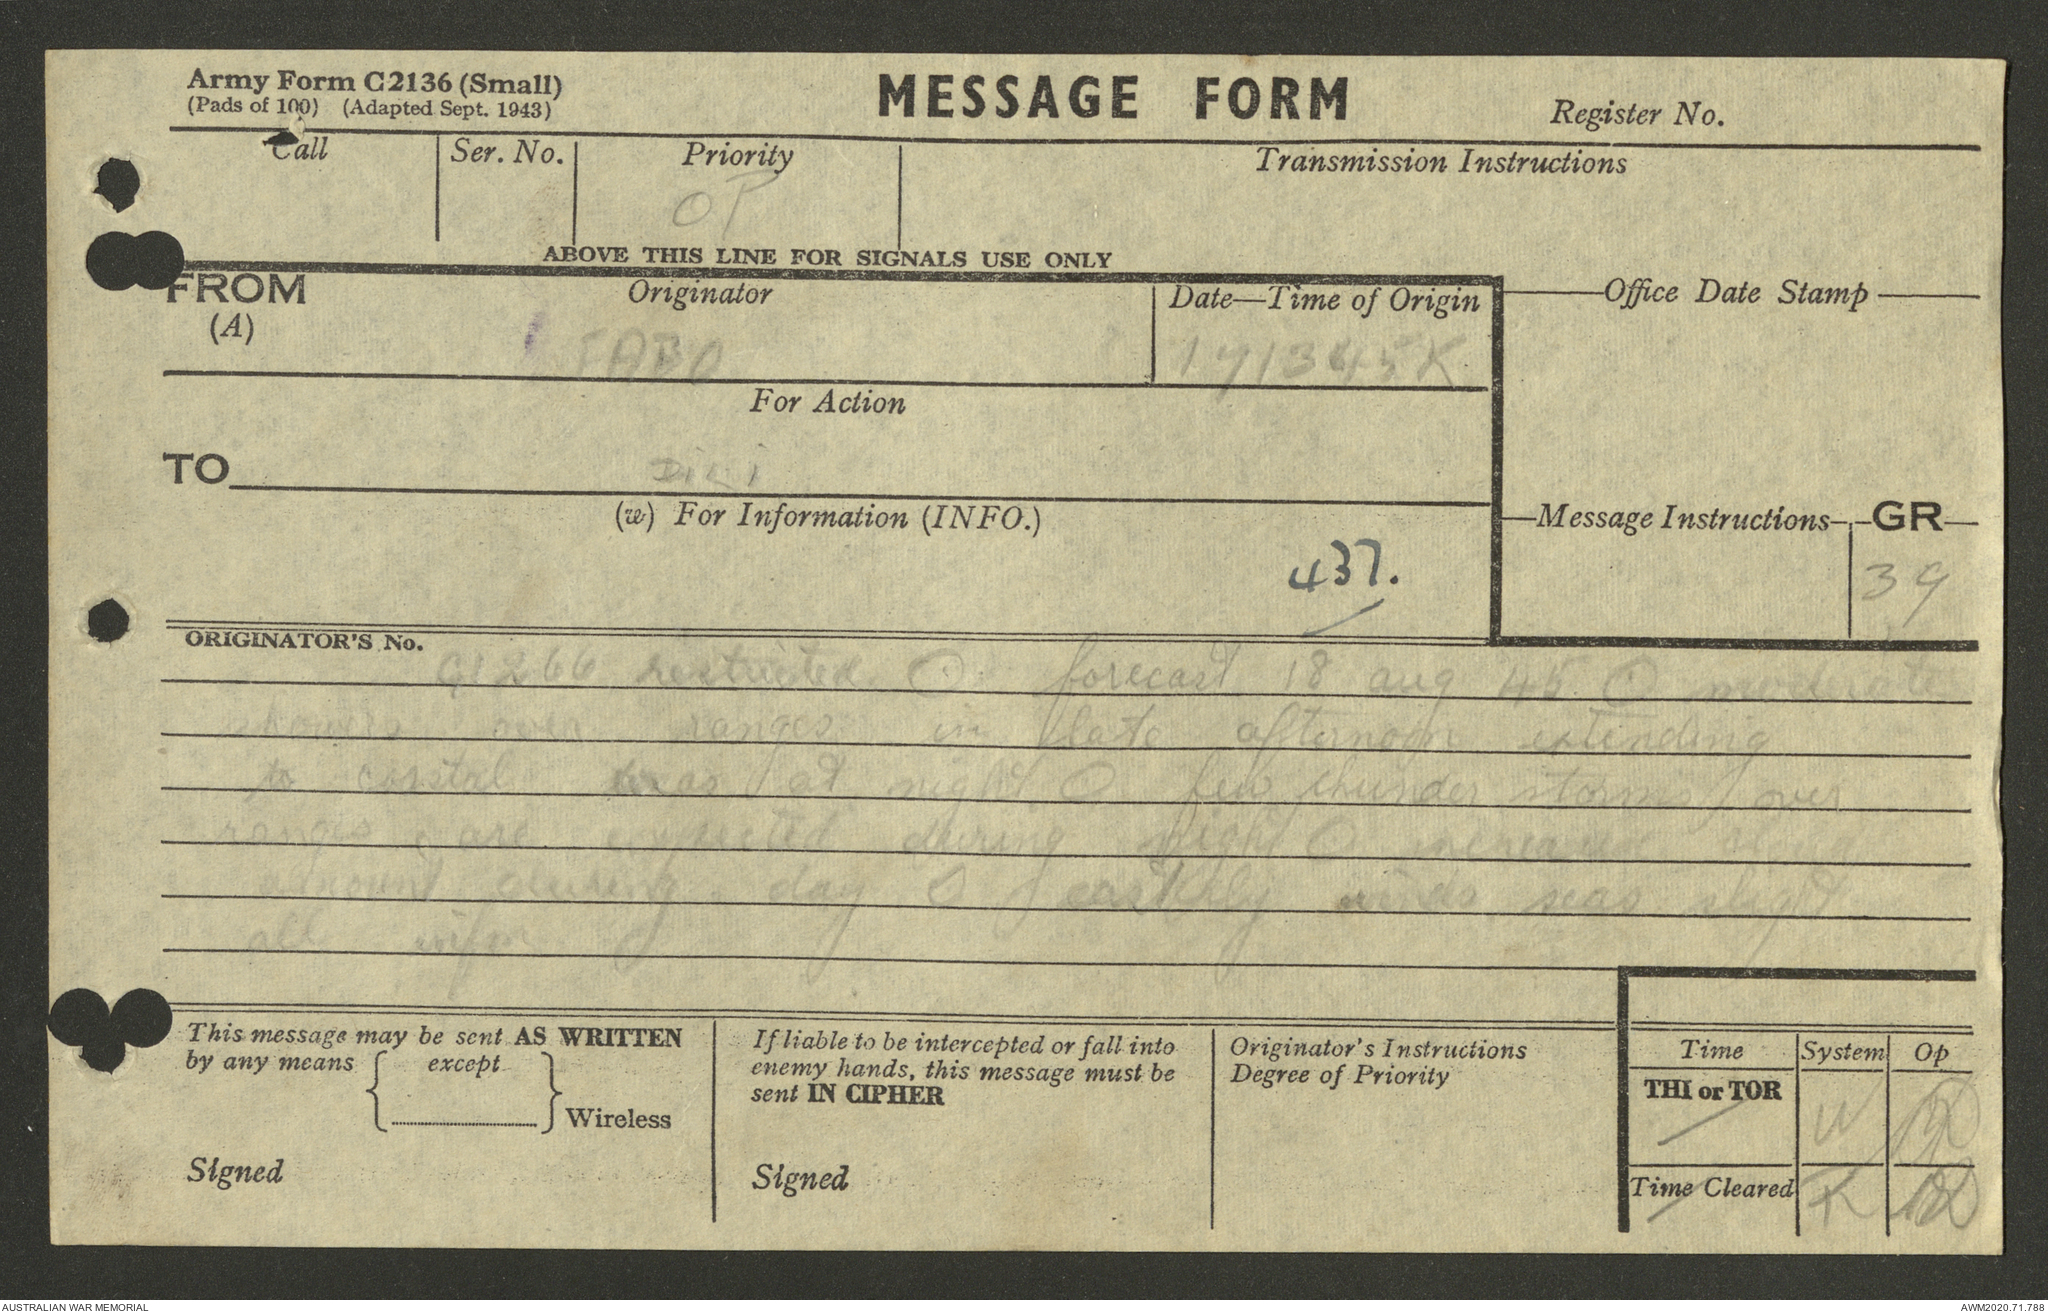 Army Form C2136 (Small)
(Pads of 100) (Adapted Sept. 1943)
MESSAGE FORM
Register No.
Call
Ser. No.
Priority
Transmission Instructions
OP
ABOVE THIS LINE FOR SIGNALS USE ONLY
FROM
(A)
Originator
Date—Time of Origin
Office Date Stamp
171345K
For Action
TO
(w) For Information (INFO.)
Message Instructions
GR
437.
39
ORIGINATOR'S No.
G1266 restricted O forecast 18 aug 45 O moderate
showers over ranges in late afternoon extending
to coastal areas at night O few thunder storms over
ranges are expected during night O increase cloud
amount during day O easterly winds seas slight
all infm
This message may be sent AS WRITTEN
by any means { except } Wireless
Signed
If liable to be intercepted or fall into
enemy hands, this message must be
sent IN CIPHER
Signed
Originator's Instructions
Degree of Priority
Time
System
Op
THI or TOR
W
Time Cleared
AUSTRALIAN WAR MEMORIAL
AWM2020.71.788